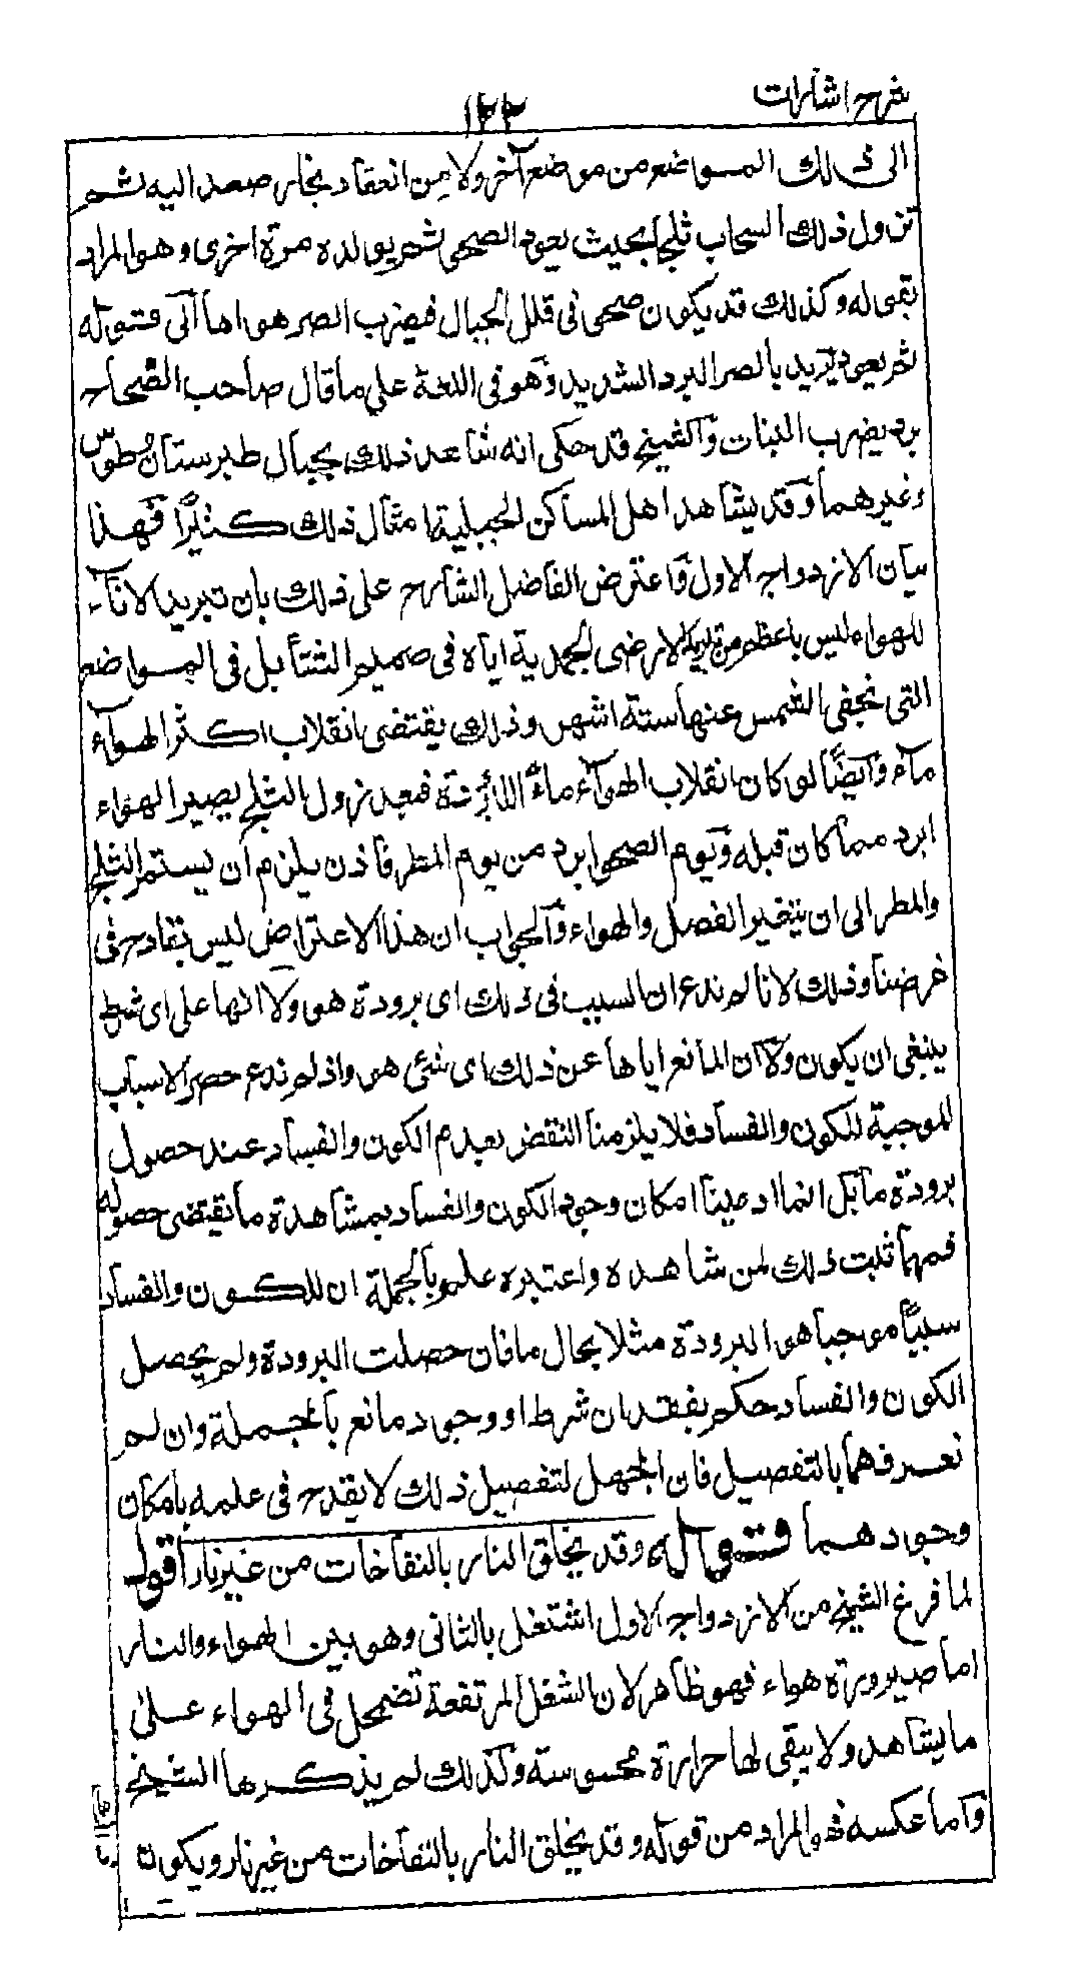 شرح اشارات
١٢٢
الى ذلك المواضع من موضع آخر ولا من انعقاد بخار صعد اليه ثم
تنزول ذلك السحاب ثلجا بحيث يعود الصحى ثم يوالده مرة اخرى وهو المراد
بقوله وكذلك قد يكون صحى فى قلل الجبال فيضرب الصر هواها الى قوله
ثم يعود يريد بالصر البرد الشديد وهو فى اللغة على ما قال صاحب الصحاح
برد يضرب النبات والشيخ قد حكى انه شاهد ذلك بجبال طبرستان وطوس
وغيرهما وقد يشاهد اهل المساكن الجبلية امثال ذلك كثيرًا فهذا
بيان الازدواج الاول واعترض الفاضل الشارح على ذلك بان تبريد الاناء
للهواء ليس باعظم من تبريد الارضى الجمدية اياه فى صميم الشتا بل فى المواضع
التى تخفى الشمس عنها ستة اشهر وذلك يقتضى انقلاب اكثر الهواء
ماء وايضًا لو كان انقلاب الهواء ماءً للبرودة فبعد نزول الثلج يصير الهواء
ابرد مما كان قبله ويوم الصحو ابرد من يوم المطر فاذن يلزم ان يستمر الثلج
والمطر الى ان يتغير الفصل والهواء والجواب ان هذا الاعتراض ليس بقادح فى
غرضنا وذلك لانا لم ندع ان السبب فى ذلك اى برودة هو ولا انها على اى شرط
ينبغى ان يكون ولا ان المانع اياها عن ذلك اى شئ هو واذ لم ندع حصر الاسباب
الموجبة للكون والفساد فلا يلزمنا النقض بعدم الكون والفساد عند حصول
برودة ما بل انما ادعينا امكان وجود الكون والفساد بمشاهدة ما تقتضى حصوله
فمهما ثبت ذلك لمن شاهده واعتبره علم بالجملة ان للكون والفساد
سببًا موجبا هو البرودة مثلا بحال ما فان حصلت البرودة ولم يحصل
الكون والفساد حكم بفقدان شرط او وجود مانع بالجملة وان لم
نعرفهما بالتفصيل فان الجهل لتفصيل ذلك لا يقدح فى علمه بامكان
وجودهما قوله وقد يخلق النار بالنفاخات من غير نار اقول
لما فرغ الشيخ من الازدواج الاول اشتغل بالثانى وهو بين الهواء والنار
اما صيرورة هواء فهو ظاهر لان الشعل المرتفعة تضمحل فى الهواء على
ما يشاهد ولا يبقى لها حرارة محسوسة وكذلك لم يذكرها الشيخ
واما عكسه فهو المراد من قوله وقد يخلق النار بالنفاخات من غير نار ويكون